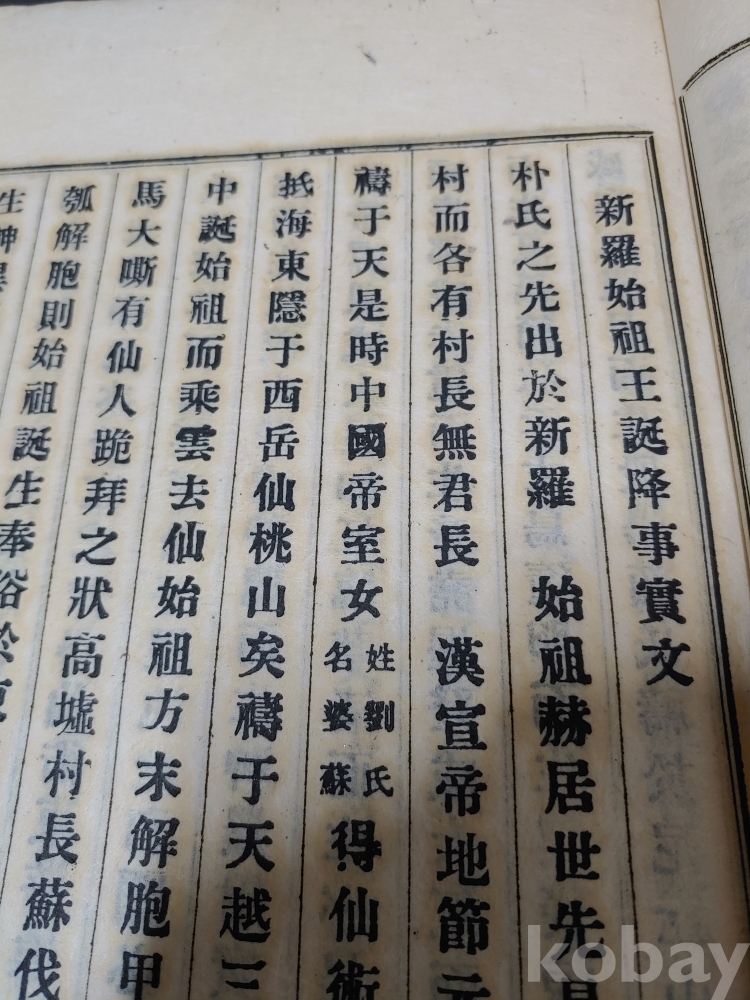 新羅始祖王誕降事實文
朴氏之先出於新羅 始祖赫居世先
村而各有村長無君長 漢宣帝地節元
禱于天是時中國帝室女姓劉氏名婆蘇得仙術
抵海東隱于西岳仙桃山矣禱于天越三
中誕始祖而乘雲去仙始祖方未解胞甲
馬大嘶有仙人跪拜之狀高墟村長蘇伐
瓠解胞則始祖誕生奉浴於
生神
kobay